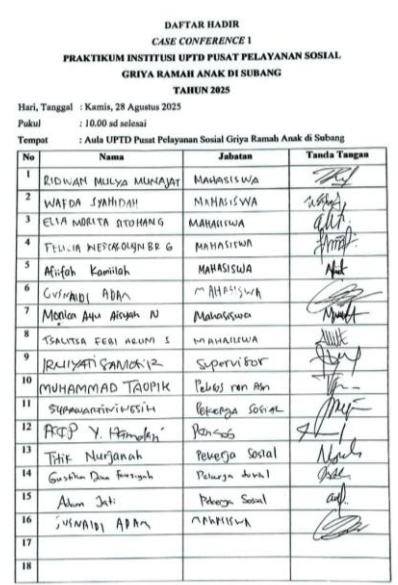 DAFTAR HADIR
CASE CONFERENCE 1
PRAKTIKUM INSTITUSI UPTD PUSAT PELAYANAN SOSIAL
GRIYA RAMAH ANAK DI SUBANG
TAHUN 2025
Hari, Tanggal : Kamis, 28 Agustus 2025
Pukul : 10.00 sd selesai
Tempat : Aula UPTD Pusat Pelayanan Sosial Griya Ramah Anak di Subang
No Nama Jabatan Tanda Tangan
1 RIDWAN MULYA MUNAJAT MAHASISWA
2 WAFDA SYAHIDAH MAHASISWA
3 ELSA MORITA MAHASISWA
4 FELICIA BR G MAHASISWA
5 Afiifah Kamiilah MAHASISWA
6 GUSNAIDI ADAM MAHASISWA
7 Monica Ayu Aisyah N Mahasiswa
8 TSALITSA FEBI ARUM S MAHASISWA
9 Supervisor
10 MUHAMMAD TAOPIK
11 Pekerja SOSIAL
12 Y.
13 Titik Nurjanah Pekerja Sosial
14 Gustina Dwi
15 Adam Jati Pekerja Sosial
16 GUSNAIDI ADAM MAHASISWA
17
18